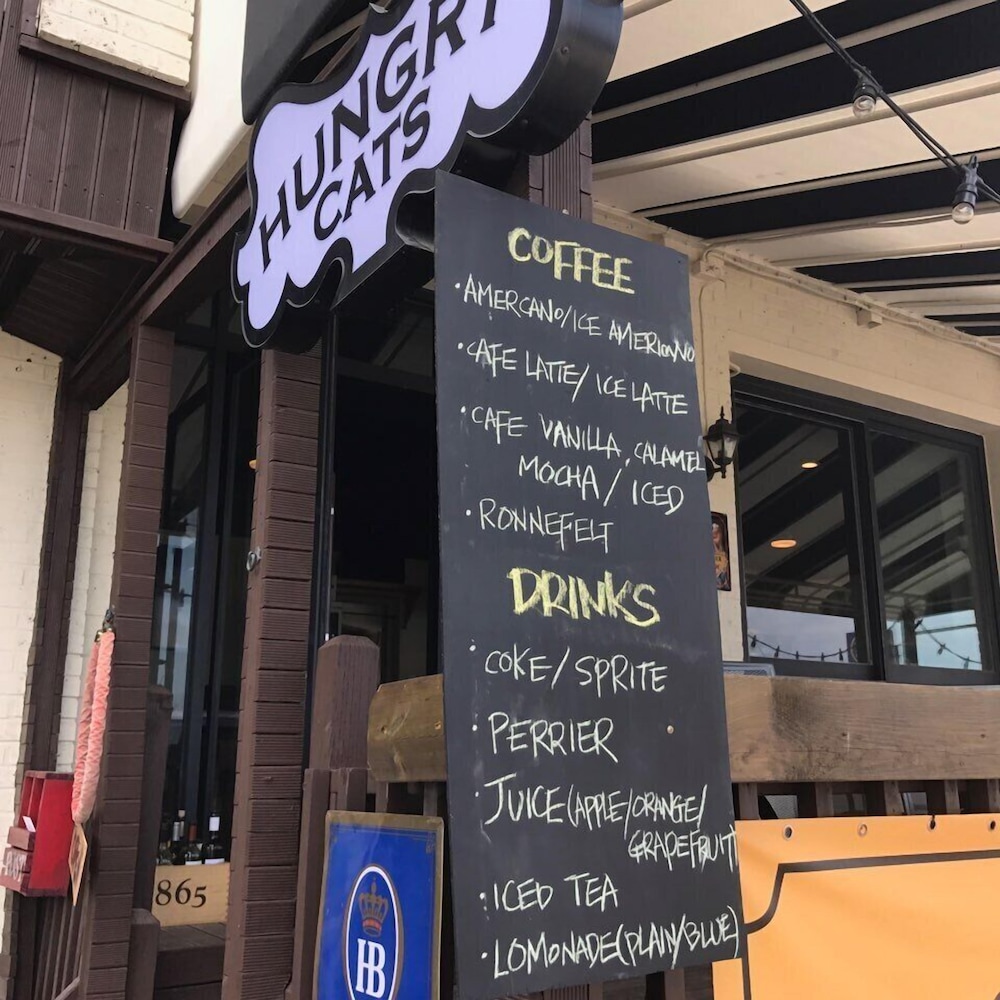 HUNGRY
CATS
COFFEE
• AMERCANO/ICE AMERICANO
• CAFE LATTE/ ICE LATTE
• CAFE VANILLA, CALAMEL
MOCHA/ ICED
• RONNEFELT
DRINKS
• COKE/SPRITE
• PERRIER
• JUICE(APPLE/ORANGE/
GRAPEFRUIT)
• ICED TEA
• LOMONADE(PLAIN/BLUE)
865
HB